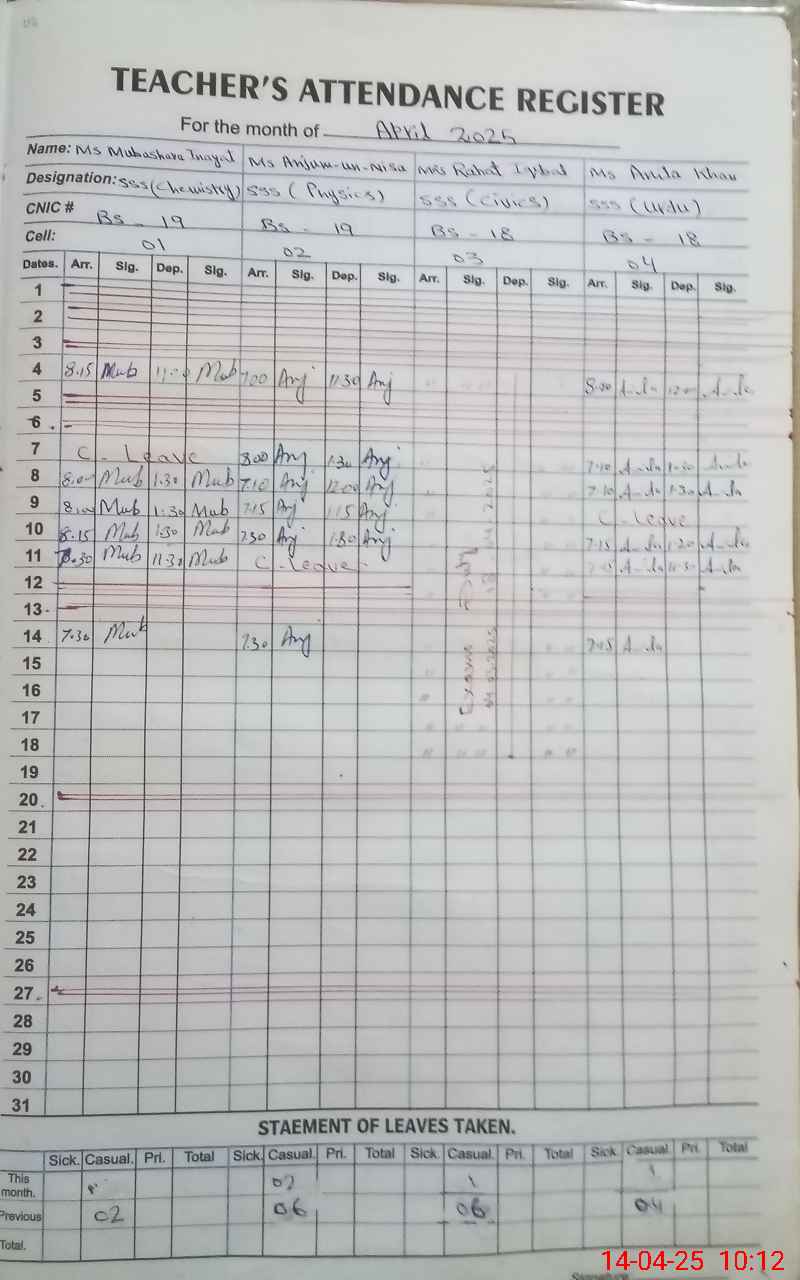 TEACHER'S ATTENDANCE REGISTER
For the month of April 2025
Name: Ms Mubashara Inayat Ms Anjum-un-Nisa Mrs Rahat Iqbal Ms Amila Khan
Designation: SSS (Chemistry) SSS (Physics) SSS (Civics) SSS (Urdu)
CNIC # BS - 19 BS - 19 BS - 18 BS - 18
Cell: 01 02 03 04
Dates. Arr. Sig. Dep. Sig. Arr. Sig. Dep. Sig. Arr. Sig. Dep. Sig. Arr. Sig. Dep. Sig.
1
2
3
4 8.15 Mub Mub 7.00 Anj 11.30 Anj 8.00
5
6
7 C. Leave 8.00 Anj 1.30 Anj 7.10
8 8.00 Mub 1.30 Mub 7.10 Anj 12.00 Anj 7.10 1.30
9 8.00 Mub 1:30 Mub 7.15 Anj 1.15 Anj C. Leave
10 8.15 Mub 1.30 Mub 7.30 Anj 1.30 Anj 7.15 1.20
11 8.30 Mub 11.30 Mub C. Leave
12
13
14 7.30 Mub 7.30 Anj 7.15
15
16
17
18
19
20
21
22
23
24
25
26
27
28
29
30
31
Exams Duty
STAEMENT OF LEAVES TAKEN.
Sick. Casual. Pri. Total Sick. Casual. Pri. Total Sick. Casual. Pri. Total Sick. Casual. Pri. Total
This month. 02 1 1
Previous 02 06 06 04
Total.
14-04-25 10:12